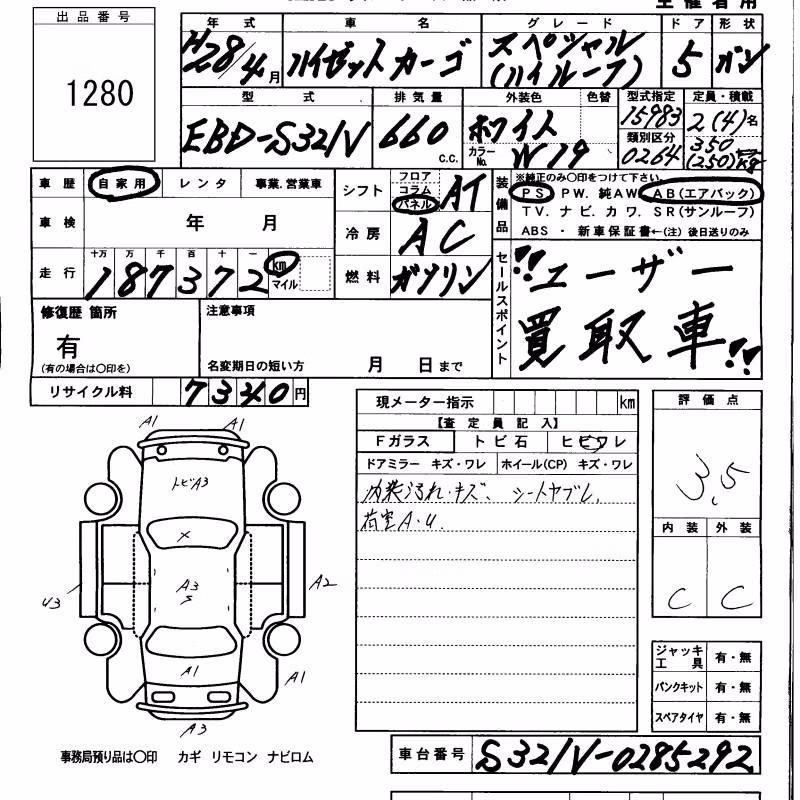 出品番号
1280
年式 車名 グレード ドア 形状
H28/4月 ハイゼットカーゴ スペシャル(ハイルーフ) 5 バン
型式 排気量 外装色 色替 型式指定 定員・積載
EBD-S321V 660 c.c. ホワイト 15983 2(4)名
カラーNo. W19 類別区分 0264 350(250)kg
車歴 自家用 レンタ 事業.営業車
車検 年 月
走行 十万 万 千 百 十 一
187372 km マイル
シフト フロア コラム パネル AT
冷房 AC
燃料 ガソリン
装備品
※純正のみ〇印をつけて下さい。
PS PW. 純AW. AB(エアバック)
TV. ナビ. カワ. SR(サンルーフ)
ABS ・ 新車保証書←(注) 後日送りのみ
セールスポイント
!!ユーザー
買取車!!
修復歴 箇所
有
(有の場合は〇印を)
注意事項
名変期日の短い方 月 日まで
リサイクル料 7340円
現メーター指示 km
【査定員記入】
Fガラス トビ石 ヒビワレ
ドアミラー キズ・ワレ ホイール(CP) キズ・ワレ
内装汚れ・キズ、 シートヤブレ、
荷室A・U.
評価点
3.5
内装 外装
C C
A1 A1
トビA3
X
A3
S
U3
A2
A1
A1
A3
ジャッキ工具 有・無
パンクキット 有・無
スペアタイヤ 有・無
事務局預り品は〇印 カギ リモコン ナビロム
車台番号 S321V-0285292